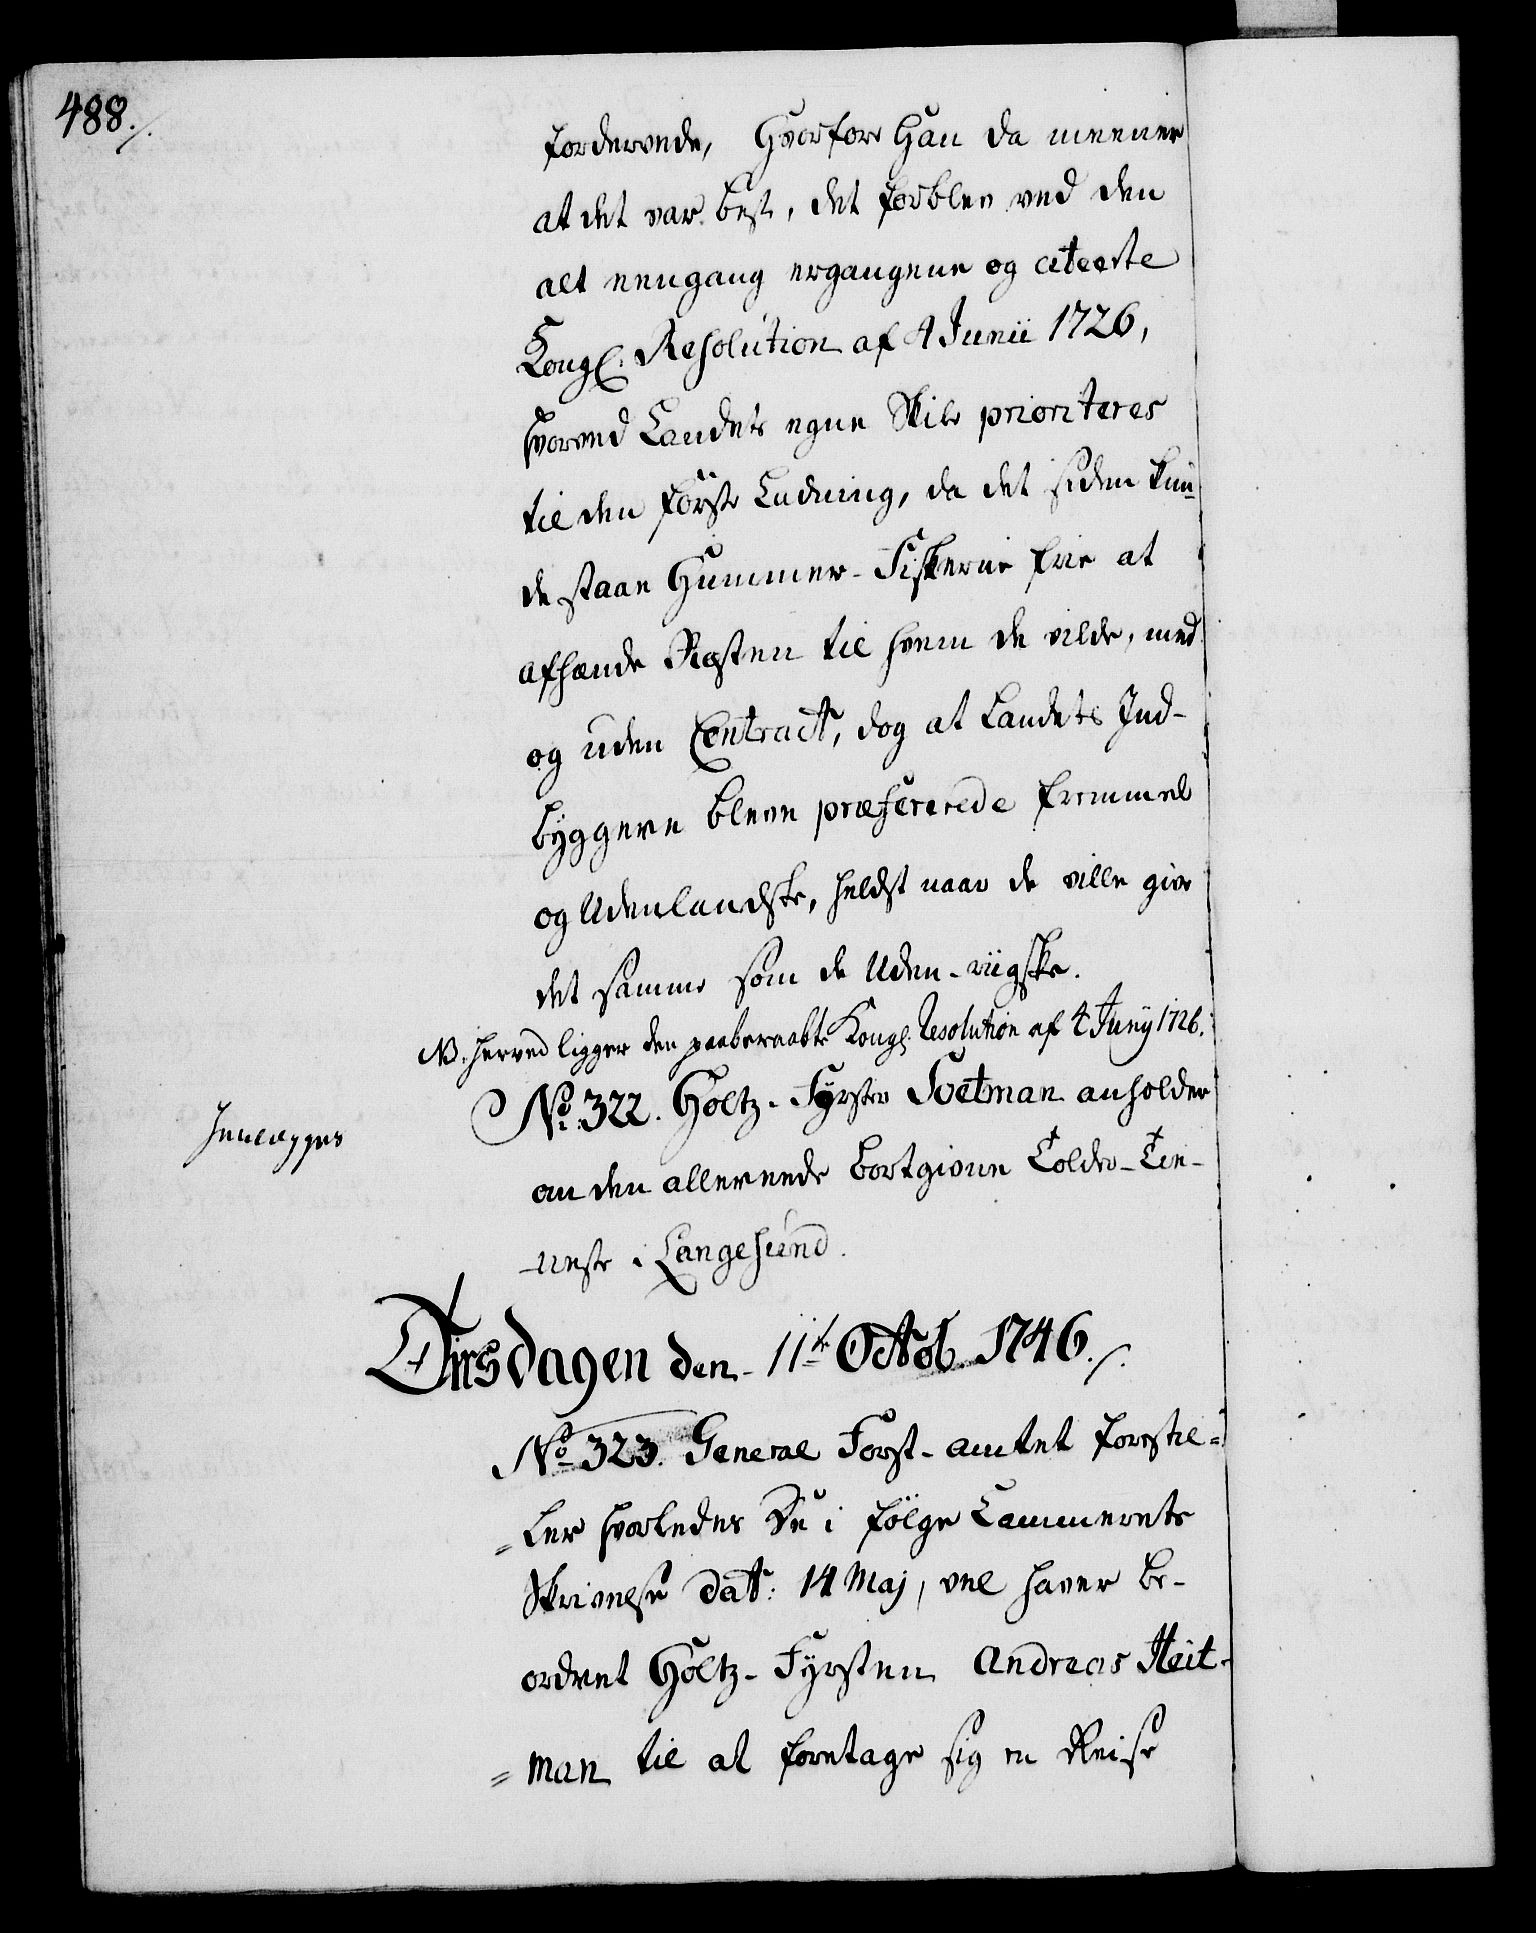 488./.
fordervede, Hvorfor Han da meener
at det var best, det forblev ved den
alt eengang ergangene og citeerte
Kongl: Resolution af 4 Junii 1726,
hvorved Landets egne Skibe prioriteres
til den förste Ladning, da det siden kun
de staae Hummer-Fiskerne frie at
afhænde Resten til hvem de vilde, med
og uden Contract, dog at Landets Ind-
byggere bleve præfererede fremmede
og Udenlandske, heldst naar de ville give
det samme som de Uden-riigske.
NB. herved ligger den paaberaabte Kongl. Resolution af 4 Junij 1726.
No. 322. Holtz-Fyrster Soetman anholder
Henlægges
om den allereede bortgivne Tolder-Tie-
-neste i Langesund.
Tirsdagen den 11te Octob. 1746./.
No 323. General Forst-amtet forestil=
=ler hvorledes De i fölge Cammerets
Skrivelse dat: 14 Maj, vel haver be-
ordret Holtz-Fyrsten Andreas Heit-
=man til at foretage sig en Reise